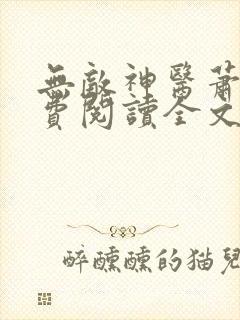 無敵神醫蕭
費閱讀全文
醉醺醺的猫兒